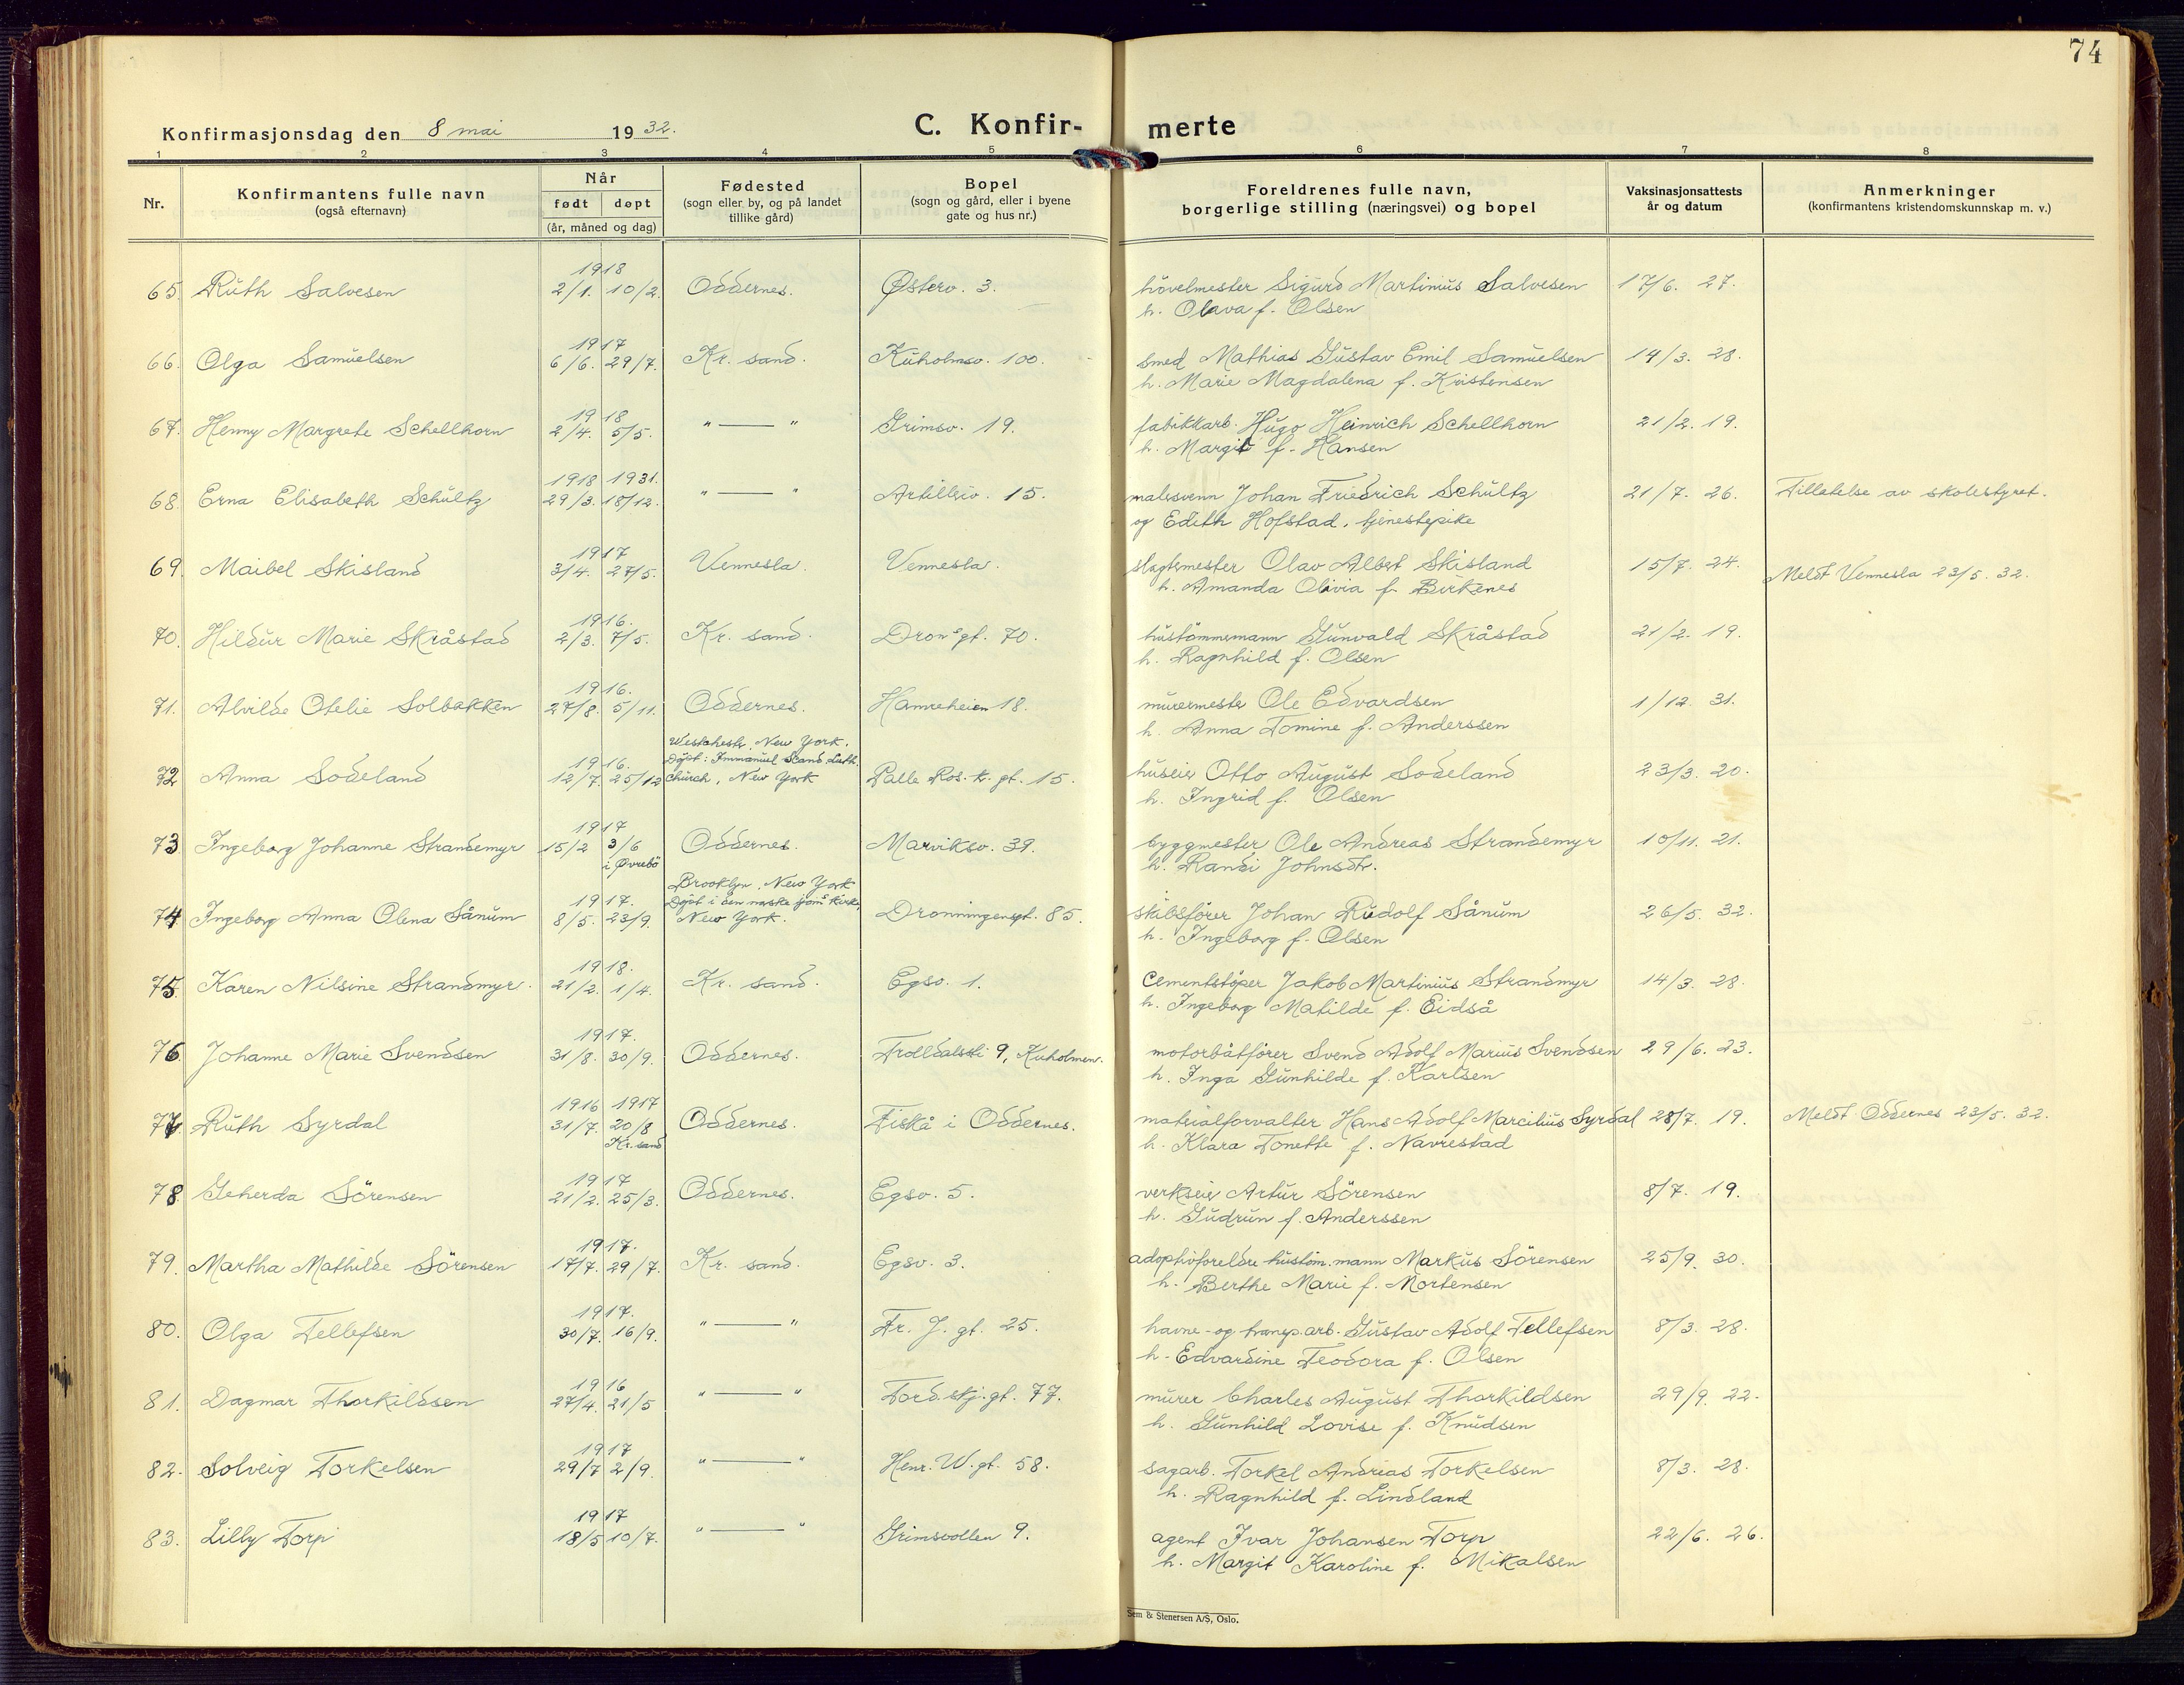 74
Konfirmasjonsdag den 8 mai 1932.
C. Konfir- merte
1 2 3 4 5 6 7 8
Nr.
Konfirmantens fulle navn
(også efternavn)
Når
født døpt
(år, måned og dag)
Fødested
(sogn eller by, og på landet
tillike gård)
Bopel
(sogn og gård, eller i byene
gate og hus nr.)
Foreldrenes fulle navn,
borgerlige stilling (næringsvei) og bopel
Vaksinasjonsattests
år og datum
Anmerkninger
(konfirmantens kristendomskunnskap m. v.)
1918
65. Ruth Salvesen 2/1. 10/2. Oddernes. Østerv. 3. hövelmester Sigurd Martinius Salvesen 17/6. 27.
h. Olava f. Olsen
1917
66. Olga Samuelsen 6/6. 29/7. Kr. sand. Kuholmsv. 100. smed Mathias Gustav Emil Samuelsen 14/3. 28.
h. Marie Magdalena f. Kristensen
1918
67. Henny Margrete Schellhorn 2/4. 5/5. " — " Grimsv. 19. fabikkarb. Hugo Heinrich Schellhorn 21/2. 19.
h. Margit f. Hansen
1918 1931.
68. Erna Elisabeth Schultz 29/3. 18/12. " — " Artilleiv. 15. malersvenn Johan Friedrich Schultz 21/7. 26. Tillatelse av skolestyret.
og Edith Hofstad, tjenestepike
1917
69. Maibel Skisland 3/4. 27/5. Vennesla. Vennesla. slagtermester Olav Albert Skisland 15/7. 24. Meldt Vennesla 23/5. 32.
h. Amanda Olivia f. Birkenes
1916.
70. Hildur Marie Skråstad 2/3. 7/5. Kr. sand. Dronsgt. 70. hustömmermann Gunvald Skråstad 21/2. 19.
h. Ragnhild f. Olsen
1916.
71. Alvilde Otelie Solbakken 27/8. 5/11. Oddernes. Hamreheien 18. murermester Ole Edvardsen 1/12. 31.
h. Anna Tomine f. Anderssen
Westchestr, New York.
1916. Döpt: Immanuel Scand. Luth.
72 Anna Sodeland 12/7. 25/12 Church, New York Palle Ros. k. gt. 15. huseier Otto August Sodeland 23/3. 20.
h. Ingrid f. Olsen
1917
73 Ingeborg Johanne Strandemyr 15/2 3/6 Oddernes. Marviksv. 39. byggmester Ole Andreas Strandemyr 10/11. 21.
i Øvrebö h. Randi Johnsdt.
Brooklyn, New York
1917. Döpt i den norske sjöms kirke,
74 Ingeborg Anna Olena Sånum 8/5. 23/9. New York. Dronningensgt. 85. skibsförer Johan Rudolf Sånum 26/5. 32.
h. Ingeborg f. Olsen
1918.
75. Karen Nilsine Strandmyr. 21/2. 1/4. Kr. sand. Egsv. 1. Cementstöper Jakob Martinius Strandmyr 14/3. 28.
h. Ingeborg Matilde f. Eidså
1917.
76 Johanne Marie Svendsen 31/8. 30/9. Oddernes. Trolldalskli 9, Kuholmen. motorbåtförer Svend Adolf Marius Svendsen 29/6. 23.
h. Inga Gunhilde f. Karlsen
1916 1917
77. Ruth Syrdal 31/7. 20/8 Oddernes. Fiskå i Oddernes. materialforvalter Hans Adolf Marcilius Syrdal 28/7. 19. Meldt Oddernes 23/5. 32.
Kr. sand h. Klara Tonette f. Navrestad
1917
78 Geherda Sörensen 21/2. 25/3. Oddernes. Egsv. 5. verkseier Artur Sörensen 8/7. 19.
h. Gudrun f. Anderssen
1917.
79. Martha Mathilde Sörensen 17/7. 29/7. Kr. sand. Egsv. 3. adoptivforeldre hustöm.mann Markus Sörensen 25/9. 30.
h. Berthe Marie f. Mortensen
1917.
80. Olga Tellefsen 30/7. 16/9. " — " Fr. J. gt. 25. havne- og transp.arb. Gustav Adolf Tellefsen 8/3. 28.
h. Edvardine Teodora f. Olsen
1916
81. Dagmar Thorkildsen 27/4. 21/5 " — " Tord.skj.gt. 77. murer Charles August Thorkildsen 29/9. 22.
h. Gunhild Lovise f. Knudsen
1917
82. Solveig Torkelsen 29/7 2/9. " — " Henr. W. gt. 58. sagarb. Torkel Andreas Torkelsen 8/3. 28.
h. Ragnhild f. Lindland
1917
83. Lilly Torp 18/5 10/7. " — " Grimsvollen 9. agent Ivar Johansen Torp 22/6. 26.
h. Margit Karoline f. Mikalsen
Sem & Stenersen A/S, Oslo.